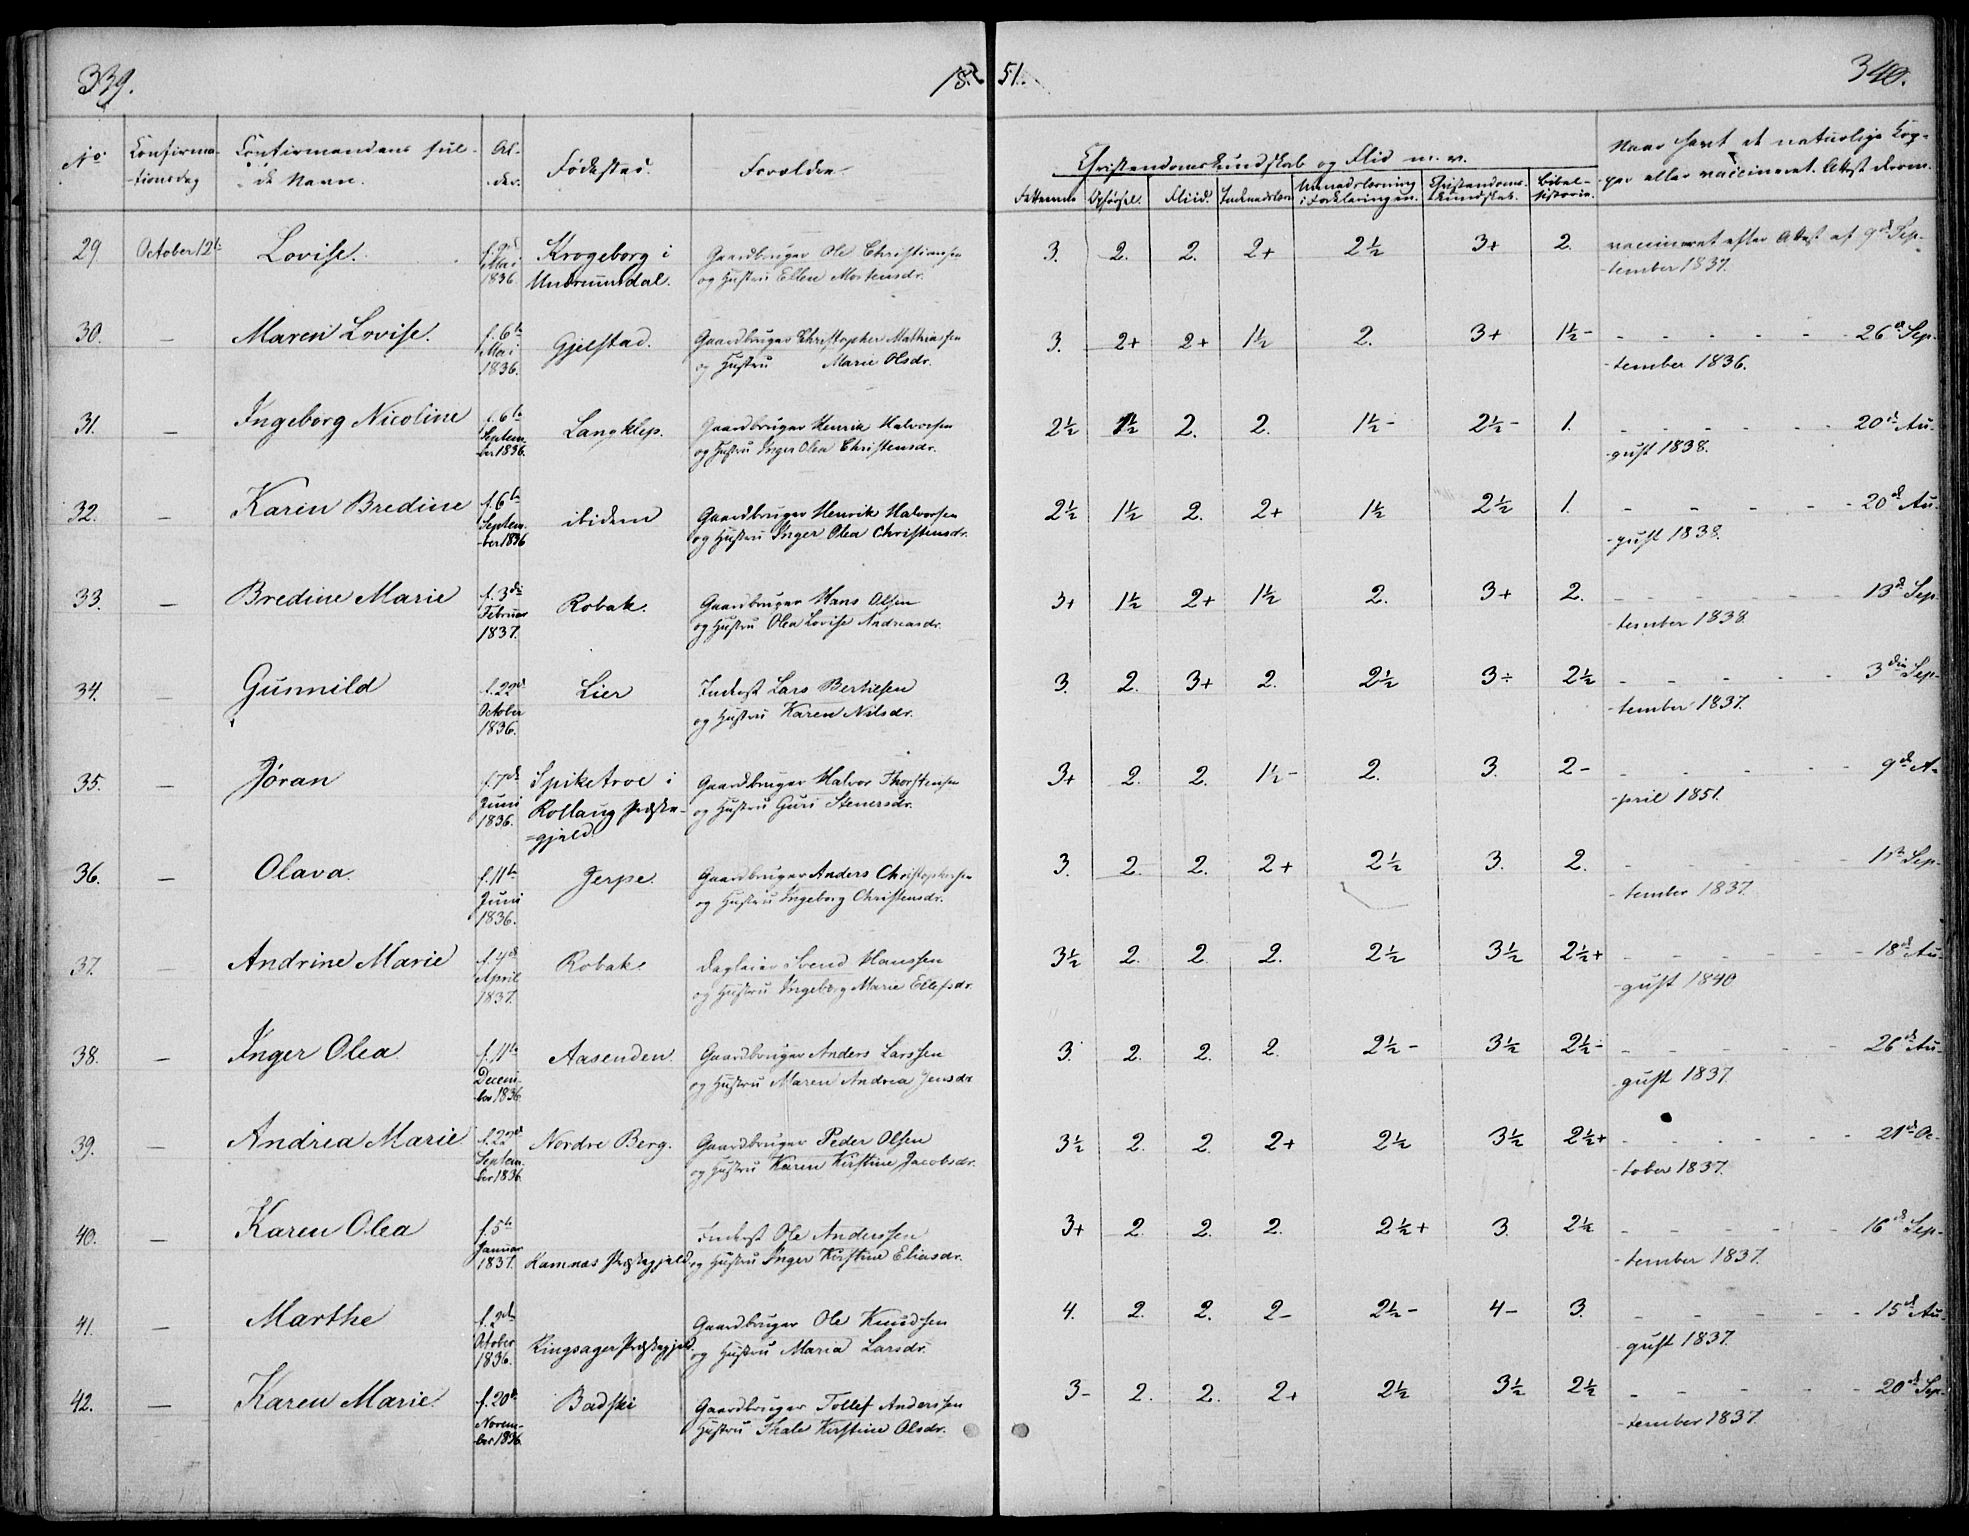 339.
18 51.
340.
No
Confirma-
-tionsdag
Confirmandens ful-
de Navn.
Al-
der.
Fødested.
Forældre.
Christendomskundskab og Flid m. v.
Fatteevne Opførsel. Fliid. Indenadslæsn Udenadslæsning
i Forklaringen. Christendoms-
kundskab. Bibel-
historie.
Naar havt de naturlige Kop-
per eller vaccineret. Attest derom.
29 October 12te Lovise. f. 2d
Mai
1836. Krogeborg i
Undrumsdal. Gaardbruger Ole Christianssen
og Hustru Ellen Mortensdr. 3. 2. 2. 2+ 2½ 3+ 2. vaccineret efter Attest af 9de Sep-
-tember 1837.
30. — Maren Lovise. f. 6te
Mai
1836. Gjelstad. Gaardbruger Christopher Mathiassen
og Hustru Marie Olsdr. 3. 2+ 2+ 1½ 2. 3+ 1½- - - - - - 26de Sep-
-tember 1836.
31. — Ingeborg Nicoline f. 6te
Septem-
-ber 1836. Langklep. Gaardbruger Henrik Halvorsen
og Hustru Inger Olea Christensdr. 2½ 1½ 2. 2. 1½- 2½- 1. - - - - - 20de Au-
-gust 1838.
32. — Karen Bredine f. 6te
Septem-
-ber 1836 ibidem Gaardbruger Henrik Halvorsen
og Hustru Inger Olea Christensdr. 2½ 1½ 2. 2+ 1½ 2½ 1. - - - - - 20de Au-
-gust 1838.
33. — Bredine Marie f. 3die
Februar
1837. Robak. Gaardbruger Hans Olsen
og Hustru Olea Lovise Andreasdr. 3+ 1½ 2+ 1½ 2. 3+ 2. - - - - - 13de Sep-
-tember 1838.
34. — Gunnild f. 29de
October
1836. Lier Inderst Lars Bertilsen
og Hustru Karen Nilsdr. 3. 2. 3+ 2. 2½ 3÷ 2½ - - - - - 3die Sep-
-tember 1837.
35. — Jøran f. 7de
Juni
1836. Spiketroe i
Rollaug Præste-
=gjeld. Gaardbruger Halvor Thorstensen
og Hustru Guri Stenersdr. 3+ 2. 2. 1½- 2. 3. 2- - - - - - 9de A-
-pril 1851.
36. — Olava. f. 11te
Juni
1836. Jerpe. Gaardbruger Anders Christophersen
og Hustru Ingeborg Christensdr. 3. 2. 2. 2+ 2½ 3. 2. - - - - - 11te Sep-
-tember 1837.
37. — Andrine Marie f. 4de
April
1837. Robak. Dagleier Svend Hanssen
og Hustru Ingeborg Marie Ellefsdr. 3½ 2. 2. 2. 2½ 3½ 2½+ - - - - - 18de Au-
-gust 1840
38. — Inger Olea f. 11te
Decem-
-ber 1836. Aasenden. Gaardbruger Anders Larssen
og Hustru Maren Andrea Jensdr. 3. 2. 2. 2. 2½- 3½ 2½- - - - - - 26de Au-
-gust 1837.
39. — Andrea Marie f. 22de
Septem-
ber 1836. Nordre Berg. Gaardbruger Peder Olsen
og Hustru Karen Kirstine Jacobsdr. 3½ 2. 2. 2+ 2½ 3½ 2½+ - - - - - 21de Oc-
-tober 1837.
40. — Karen Olea f. 5te
Januar
1837. Ramnæs Præstegjeld. Inderst Ole Anderssen
og Hustru Inger Kirstine Eliasdr. 3+ 2. 2. 2. 2½+ 3. 2½ - - - - - 16de Sep-
-tember 1837.
41. — Marthe f. 9de
October
1836. Ringsager Præstegjeld. Gaardbruger Ole Knudssen
og Hustru Maria Larsdr. 4. 2. 2. 2- 2½- 4- 3. - - - - - 15de Au-
-gust 1837
42. — Karen Marie. f. 20de
Novem-
ber 1836. Badski Gaardbruger Tollef Anderssen
Hustru Thale Kirstine Olsdr. 3- 2. 2. 2+ 2½ 3½ 2½ - - - - - 20de Sep-
-tember 1837.